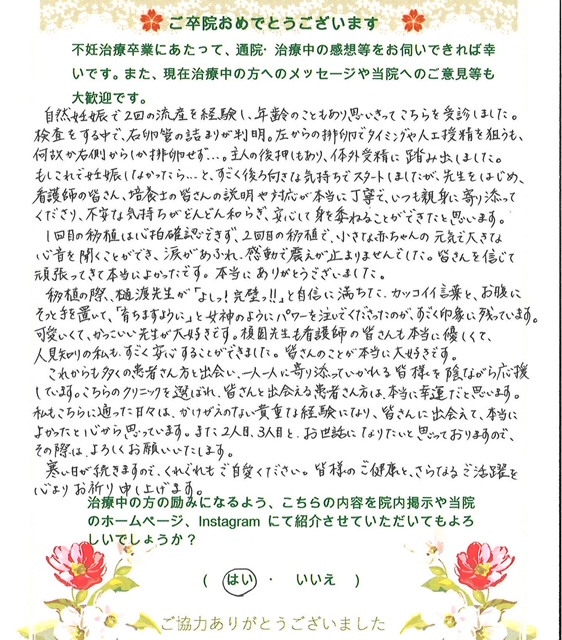 ご卒院おめでとうございます
不妊治療卒業にあたって、通院・治療中の感想等をお伺いできれば幸
いです。また、現在治療中の方へのメッセージや当院へのご意見等も
大歓迎です。
自然妊娠で2回の流産を経験し、年齢のこともあり思いきってこちらを受診しました。
検査をする中で、右卵管の詰まりが判明。左からの排卵でタイミングや人工授精を狙うも、
何故か右側からしか排卵せず…。主人の後押しもあり、体外受精に踏み出しました。
もしこれで妊娠しなかったら…と、すごく後ろ向きな気持ちでスタートしましたが、先生をはじめ、
看護師の皆さん、培養士の皆さんの説明や対応が本当に丁寧で、いつも親身に寄り添って
くださり、不安な気持ちがどんどん和らぎ、安心して身を委ねることができたと思います。
1回目の移植は心拍確認できず、2回目の移植で、小さな赤ちゃんの元気で大きな
心音を聞くことができ、涙があふれ、感動で震えが止まりませんでした。皆さんを信じて
頑張ってきて本当によかったです。本当にありがとうございました。
移植の際、樋渡先生が「よしっ!完璧っ!!」と自信に満ちたカッコイイ言葉と、お腹に
そっと手を置いて、「育ちますように」と女神のようにパワーを注いでくださったのが、すごく印象に残っています。
可愛いくて、かっこいい先生が大好きです。植園先生も看護師の皆さんも本当に優しくて、
人見知りの私も、すごく安心することができました。皆さんのことが本当に大好きです。
これからも多くの患者さん方と出会い、一人一人に寄り添っていかれる皆様を陰ながら応援
しています。こちらのクリニックを選ばれ、皆さんと出会える患者さん方は、本当に幸運だと思います。
私もこちらに通った日々は、かけがえのない貴重な経験になり、皆さんに出会えて、本当に
よかったと心から思っています。また2人目、3人目と、お世話になりたいと思っておりますので、
その際は、よろしくお願いいたします。
寒い日が続きますので、くれぐれもご自愛ください。皆様のご健康と、さらなるご活躍を
心よりお祈り申し上げます。
治療中の方の励みになるよう、こちらの内容を院内掲示や当院
のホームページ、Instagram にて紹介させていただいてもよろ
しいでしょうか？
（ はい ・ いいえ ）
ご協力ありがとうございました